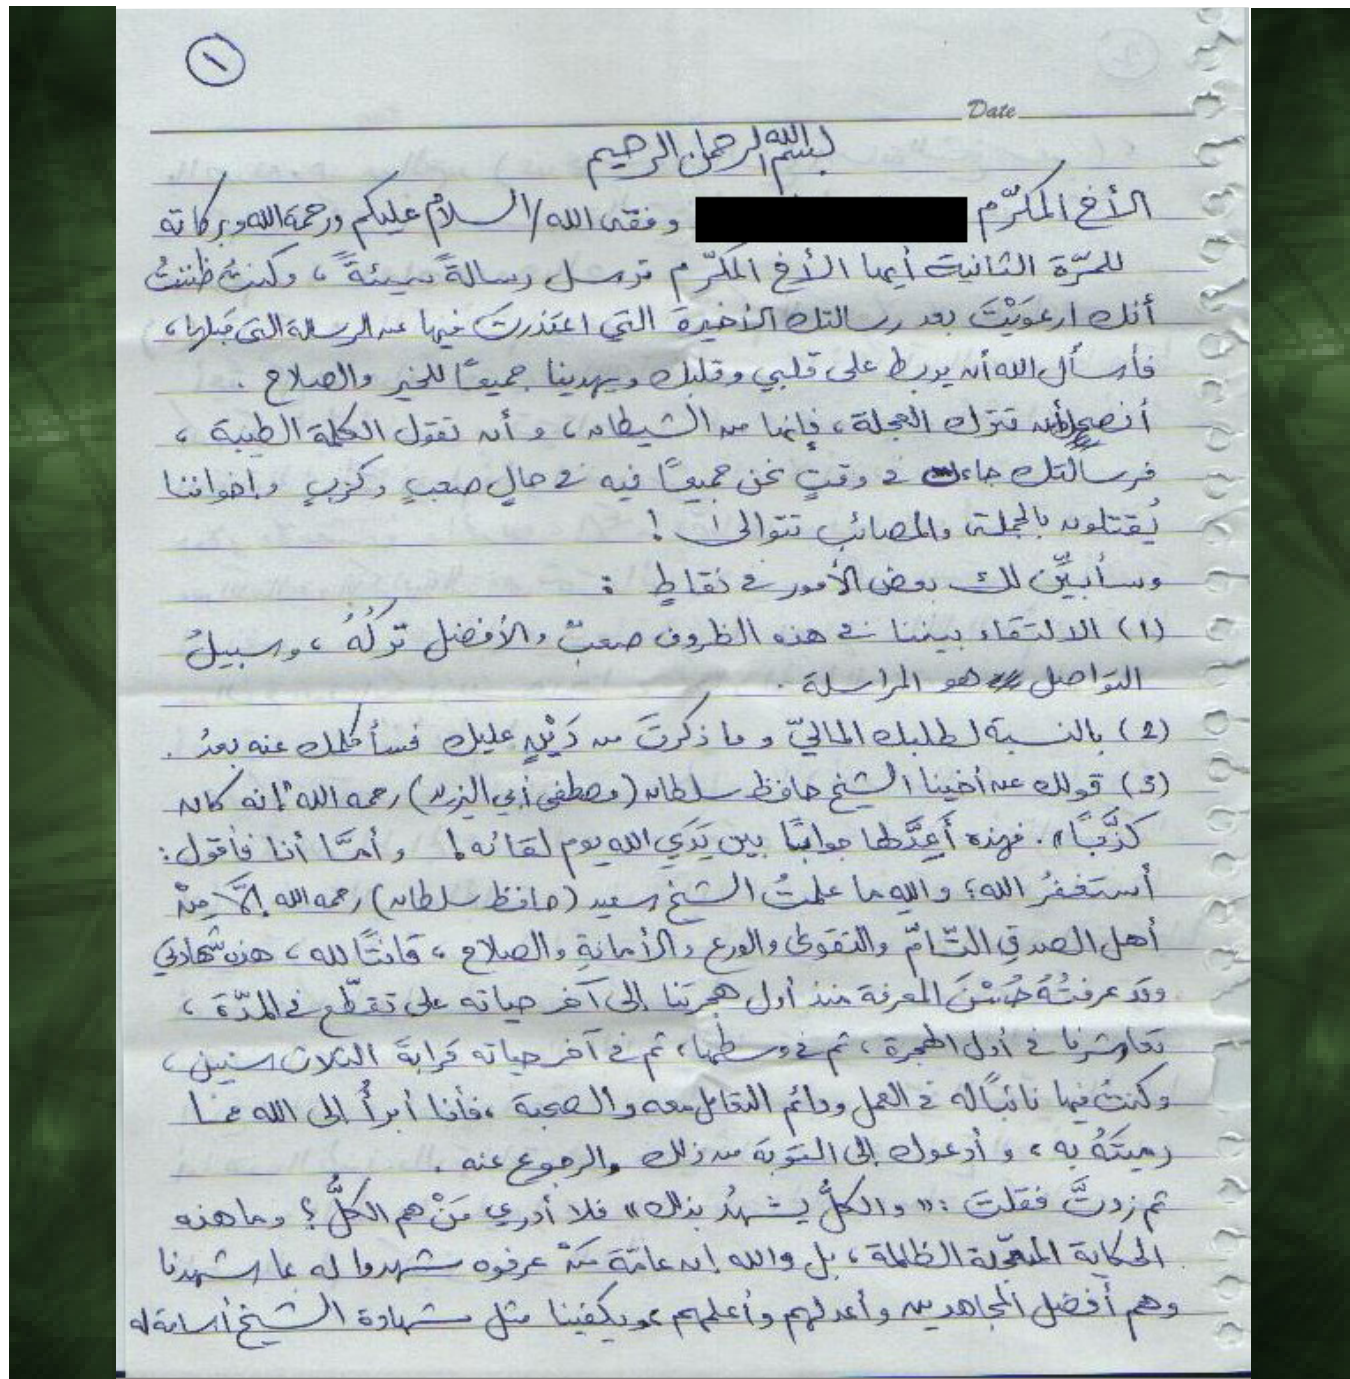 ١
Date
بسم الله الرحمن الرحيم
الأخ المكرّم وفقه الله/ السلام عليكم ورحمة الله وبركاته
للمرّة الثانية أيها الأخ المكرّم ترسل رسالةً سيئةً، وكنتُ ظننتُ
أنك ارعوَيْتَ بعد رسالتك الأخيرة التي اعتذرتَ فيها عن الرسالة التي قبلها،
فأسأل الله أن يربط على قلبي وقلبك ويهدينا جميعًا للخير والصلاح .
أنصح أن تترك العجلة، فإنها من الشيطان، وأن تقول الكلمة الطيبة ،
فرسالتك جاءت في وقتٍ نحن جميعًا فيه في حالٍ صعبٍ وكربٍ وإخواننا
يُقتلون بالجملة، والمصائب تتوالى !
وسأبيّن لك بعض الأمور في نقاطٍ :
(1) الالتقاء بيننا في هذه الظروف صعبٌ والأفضل تركُهُ ، وسبيلُ
التواصل هو المراسلة .
(2) بالنسبة لطلبك الماليّ وما ذكرتَ من دَيْنٍ عليك فسأكلمك عنه بعدُ .
(3) قولك عن أخينا الشيخ حافظ سلطان (مصطفى أبي اليزيد) رحمه الله "إنه كان
كذّابًا". فهذه أَعِدَّ لها جوابًا بين يَدَيِ الله يوم لقائه! وأمّا أنا فأقول:
أستغفرُ الله؛ والله ما علمتُ الشيخ سعيد (حافظ سلطان) رحمه الله إلّا مِنْ
أهل الصدق التّامّ والتقوى والورع والأمانةِ والصلاح ، قانتًا لله ، هذه شهادتي
وقد عرفتُهُ حُسْنَ المعرفة منذ أول هجرتنا إلى آخر حياته على تقطّع في المدّة ،
تعاشرنا في أول الهجرة ، ثم في وسطها، ثم في آخر حياته قرابةَ الثلاث سنين ،
وكنتُ فيها نائبًا له في العمل ودائم التعامل معه والصحبة ، فأنا أبرأُ إلى الله مما
رميتَهُ به ، وأدعوك إلى التوبة من ذلك والرجوع عنه .
ثم زدتَّ فقلتَ : « والكلُّ يشهدُ بذلك » فلا أدري مَنْ هم الكلُّ ؟ وما هذه
الحكاية الظالمة ، بل والله إن عامّة مَنْ عرفوه شهدوا له بما شهدنا
وهم أفضل المجاهدين وأعدلهم وأعلمهم ويكفينا مثل شهادة الشيخ أسامة له